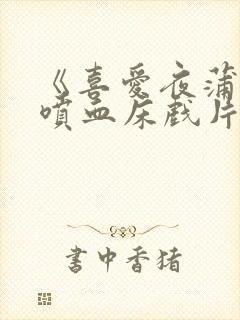 《喜爱夜蒲
喷血床戏片
書中香猪